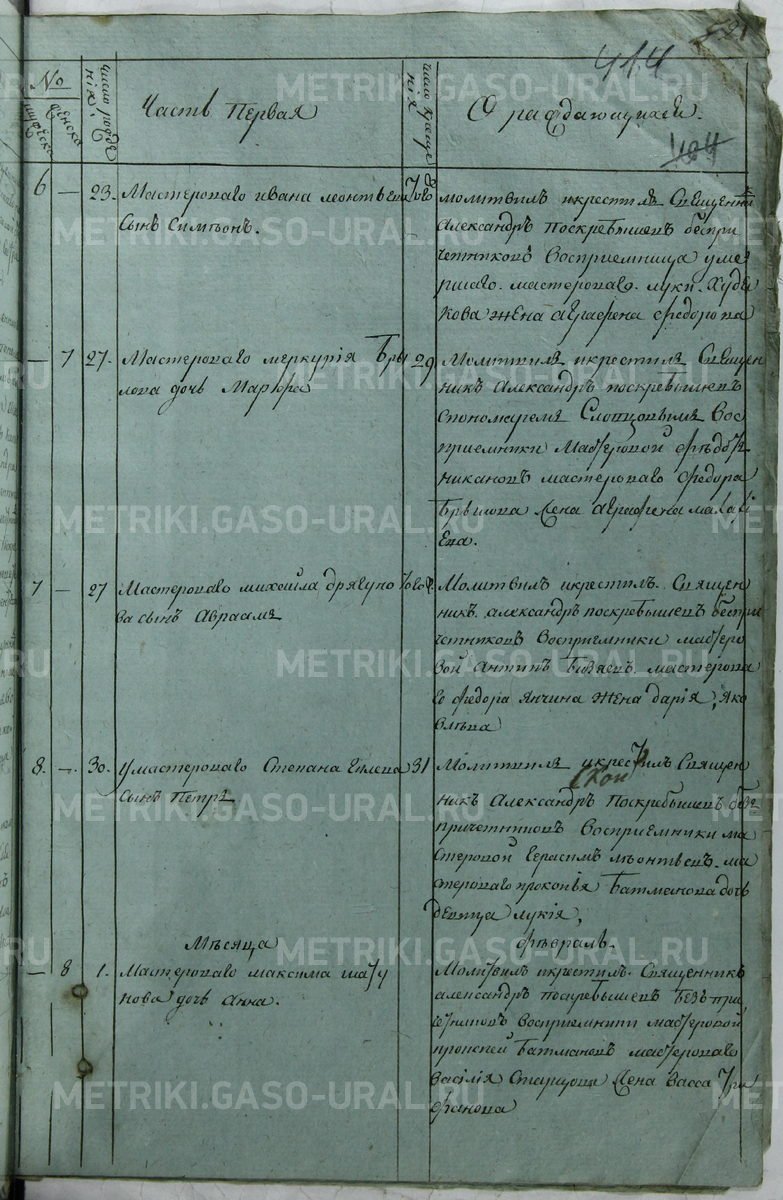 414
№
мужеска
женска
число рожденiя
Часть Первая
число крещенiя
О раждающихся.
404
6 — 23. Мастероваго ивана леонтьева
сынъ Симеонъ.
молитвилъ икрестилъ Священникъ
Александръ Поскребышевъ безпри
четниковъ Восприемница умер
шаго мастероваго луки Худя
кова жена аграфена федорова
— 7 27. Мастероваго меркурiя Бры
лова дочь Марфа
29 Молитвилъ икрестилъ Священ
никъ Александръ поскребышевъ
спономаремъ Слопцовымъ Вос
приемники Мастеровой
никановъ мастероваго федора
Брылова жена аграфена
7 — 27 Мастероваго михаила дрягуно
ва сынъ Авраамъ
Молитвилъ икрестилъ Священ
никъ александръ поскребышевъ безпри
четниковъ Восприемники мастеро
вой Антипъ мастерова
го федора Янчина жена дарiя яко
влева
8. — 30. Умастероваго Степана Еплева
сынъ Петръ
31 Молитвилъ икрестилъ Священ
никъ Александръ Поскребышевъ без
причетниковъ Восприемники ма
стеровой Герасимъ леонтьевъ ма
стероваго прокопiя Батманова дочь
девица лукiя,
Месяца февраль.
— 8 1. Мастероваго максима
нова дочь анна.
Молитвилъ икрестилъ Священникъ
александръ поскребышевъ Безъпри
четниковъ Восприемники мастеровой
Батмановъ мастероваго
василiя Старцова жена васса Три
фанова
METRIKI.GASO-URAL.RU